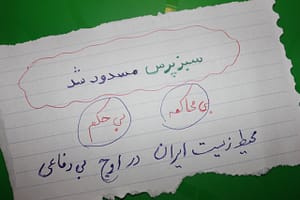 سبز پرس مسدود شد
بی محاکمه
بی حکم
محیط زیست ایران در اوج بی دفاعی